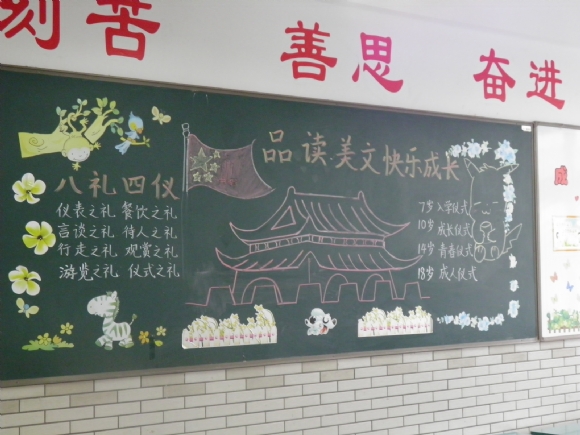 刻苦 善思 奋进
品读美文快乐成长
八礼四仪
仪表之礼 餐饮之礼
言谈之礼 待人之礼
行走之礼 观赏之礼
游览之礼 仪式之礼
7岁入学仪式
10岁 成长仪式
14岁 青春仪式
18岁 成人仪式
成